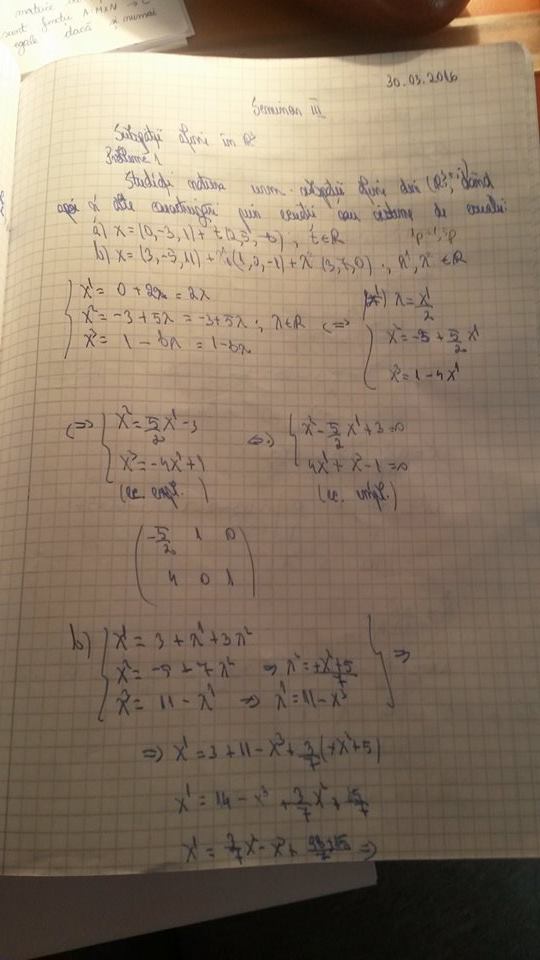 matrice
sunt functii A: MxN →
egale dacă și numai
30.03.2016
Seminar III
Subspații afine în R³
Problema 1
Studiați natura urm. subspații afine din (R³, dând
apoi și alte caracterizări prin ecuații sau sisteme de ecuații:
a) x = (0, -3, 1) + t(2, 5, -6) ; t ∈ R
b) x = (3, -3, 11) + λ¹(1, 0, -1) + λ² (3, 7, 0) ; λ¹, λ² ∈ R
x¹ = 0 + 2λ = 2λ
x² = -3 + 5λ = -3+5λ ; λ∈R <=>
x³ = 1 - 6λ = 1-6λ
λ = x¹/2
x² = -3 + 5/2 x¹
x³ = 1 - 4x¹
<=> x² = 5/2 x¹ - 3
x³ = -4x¹ + 1
(ec. expl.)
<=> x² - 5/2 x¹ + 3 = 0
4x¹ + x³ - 1 = 0
(ec. impl.)
-5/2 1 0
4 0 1
b) x¹ = 3 + λ¹ + 3λ²
x² = -5 + 7λ² => λ² = +x²+5/7
x³ = 11 - λ¹ => λ¹ = 11 - x³
=>
=> x¹ = 3 + 11 - x³ + 3/7 (+x²+5)
x¹ = 14 - x³ + 3/7 x² + 15/7
x¹ = 3/7 x² - x³ + =>